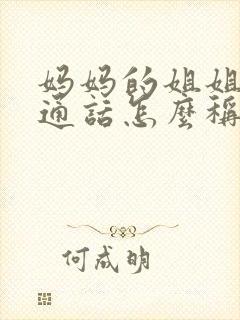 妈妈的姐姐
通话怎麼稱
何成明